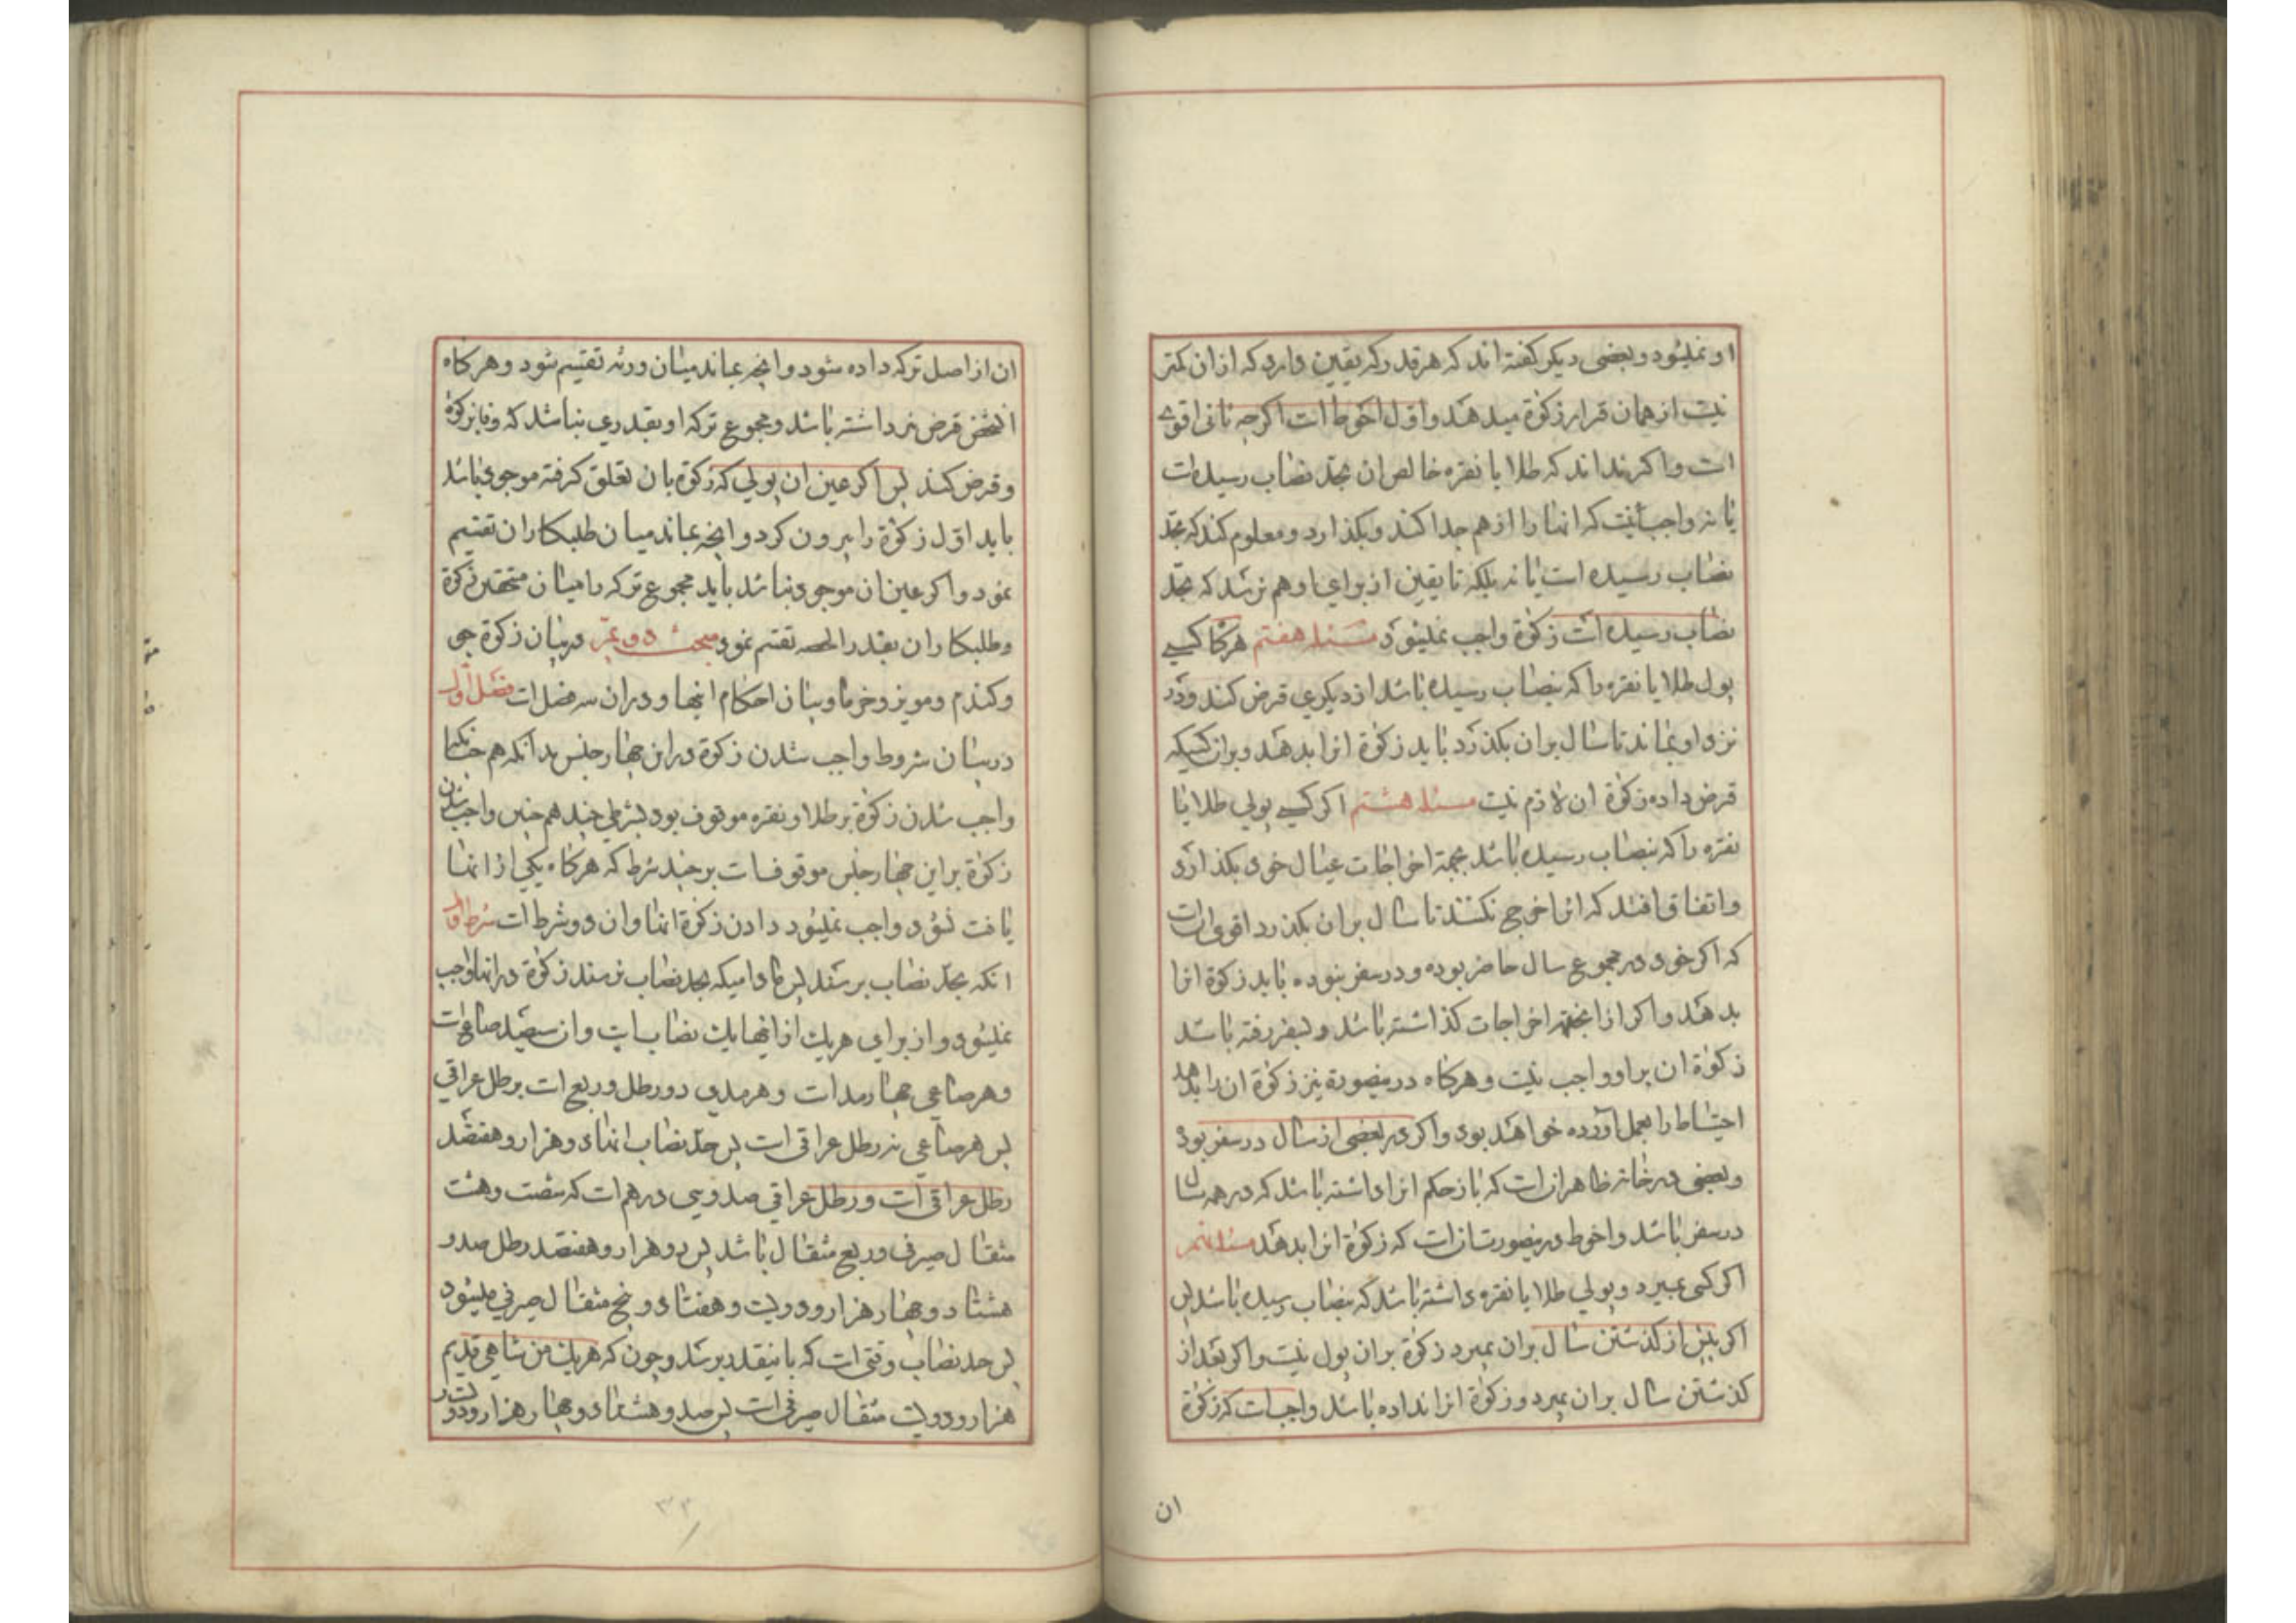 او نمیشود و بعضی دیکر کفته اند که هر قدر که یقین دارد که ازان کمتر
نیست از همان قرار زکوة میدهد و اول احوط است اکرچه ثانی اقوی
است و اکر نداند که طلا یا نقره خالص ان بحد نصاب رسیده است
یا نه واجب نیست که انها را از هم جدا کند و بکذارد و معلوم کند که بحد
نصاب رسیده است یا نه بلکه تا یقین از برای او بهم نرسد که بحد
نصاب رسیده است زکوة واجب نمیشود مسئله هفتم هرکاه کسی
پول طلا یا نقره را که بنصاب رسیده باشد از دیکری قرض کند و در
نزد او بماند تا سال بران بکذرد باید زکوة انرا بدهد و بر انکسیکه
قرض داده زکوة ان لازم نیست مسئله هشتم اکر کسی پولی طلا یا
نقره را که بنصاب رسیده باشد بجهة اخراجات عیال خود بکذارد
و اتفاق افتد که انرا خرج نکنند تا سال بران بکذرد اقوی انست
که اکر خود در مجموع سال حاضر بوده و در سفر نبوده باید زکوة انرا
بدهد و اکر از انجهة اخراجات کذاشته باشد و بسفر رفته باشد
زکوة ان بر او واجب نیست و هرکاه درینصورة نیز زکوة ان را بدهد
احتیاط را بعمل اورده خواهد بود و اکر در بعضی از سال در سفر بود
و بعضی در خانه ظاهر انست که باز حکم انرا داشته باشد که در همه سال
در سفر باشد و احوط درینصورت انست که زکوة انرا بدهد مسئله نهم
اکر کسی بمیرد و پولی طلا یا نقره داشته باشد که بنصاب رسیده باشد پس
اکر پیش از کذشتن سال بران بمیرد زکوة بران پول نیست و اکر بعد از
کذشتن سال بران بمیرد و زکوة انرا نداده باشد واجبست که زکوة
ان
ان از اصل ترکه داده شود و انچه بماند میان ورثه تقسیم شود و هرکاه
انشخص قرض نیز داشته باشد و مجموع ترکه او بقدری نباشد که وفا بزکوة
و قرض کند پس اکر عین ان پولی که زکوة بان تعلق کرفته موجود باشد
باید اول زکوة را بیرون کرد و انچه بماند میان طلبکاران تقسیم
نمود و اکر عین ان موجود نباشد باید مجموع ترکه را میان مستحقین زکوة
و طلبکاران بقدر الحصه تقسیم نمود مبحث دویم در بیان زکوة جو
و کندم و مویز و خرما و بیان احکام اینها و دران سه فصل است فصل اول
در بیان شروط واجب شدن زکوة درین چهار جنس بدانکه هم چنانکه
واجب شدن زکوة بر طلا و نقره موقوف بود بشرطی چند هم چنین واجب شدن
زکوة برین چهار جنس موقوفست بر چند شرط که هرکاه یکی از انها
یافت نشود واجب نمیشود دادن زکوة انها و ان دو شرط است شرط اول
انکه بحد نصاب برسند پس مادامیکه بحد نصاب نرسند زکوة در انها واجب
نمیشود و از برای هریک از اینها یک نصاب است و ان سیصد صاع است
و هر صاعی چهار مد است و هر مدی دو رطل و ربع است برطل عراقی
پس هر صاعی نه رطل عراقی است پس حد نصاب انها دو هزار و هفتصد
رطل عراقی است و رطل عراقی صد و سی درهم است که شصت و هشت
مثقال صیرفی و ربع مثقال باشد پس دو هزار و هفتصد رطل صد و
هشتاد و چهار هزار و دویست و هفتاد و پنج مثقال صیرفی میشود
پس حد نصاب وقتی است که باینقدر برسد و چون که هر یک من شاهی قدیم
هزار و دویست مثقال صیرفی است پس صد و هشتاد و چهار هزار و دویست و
۳۲